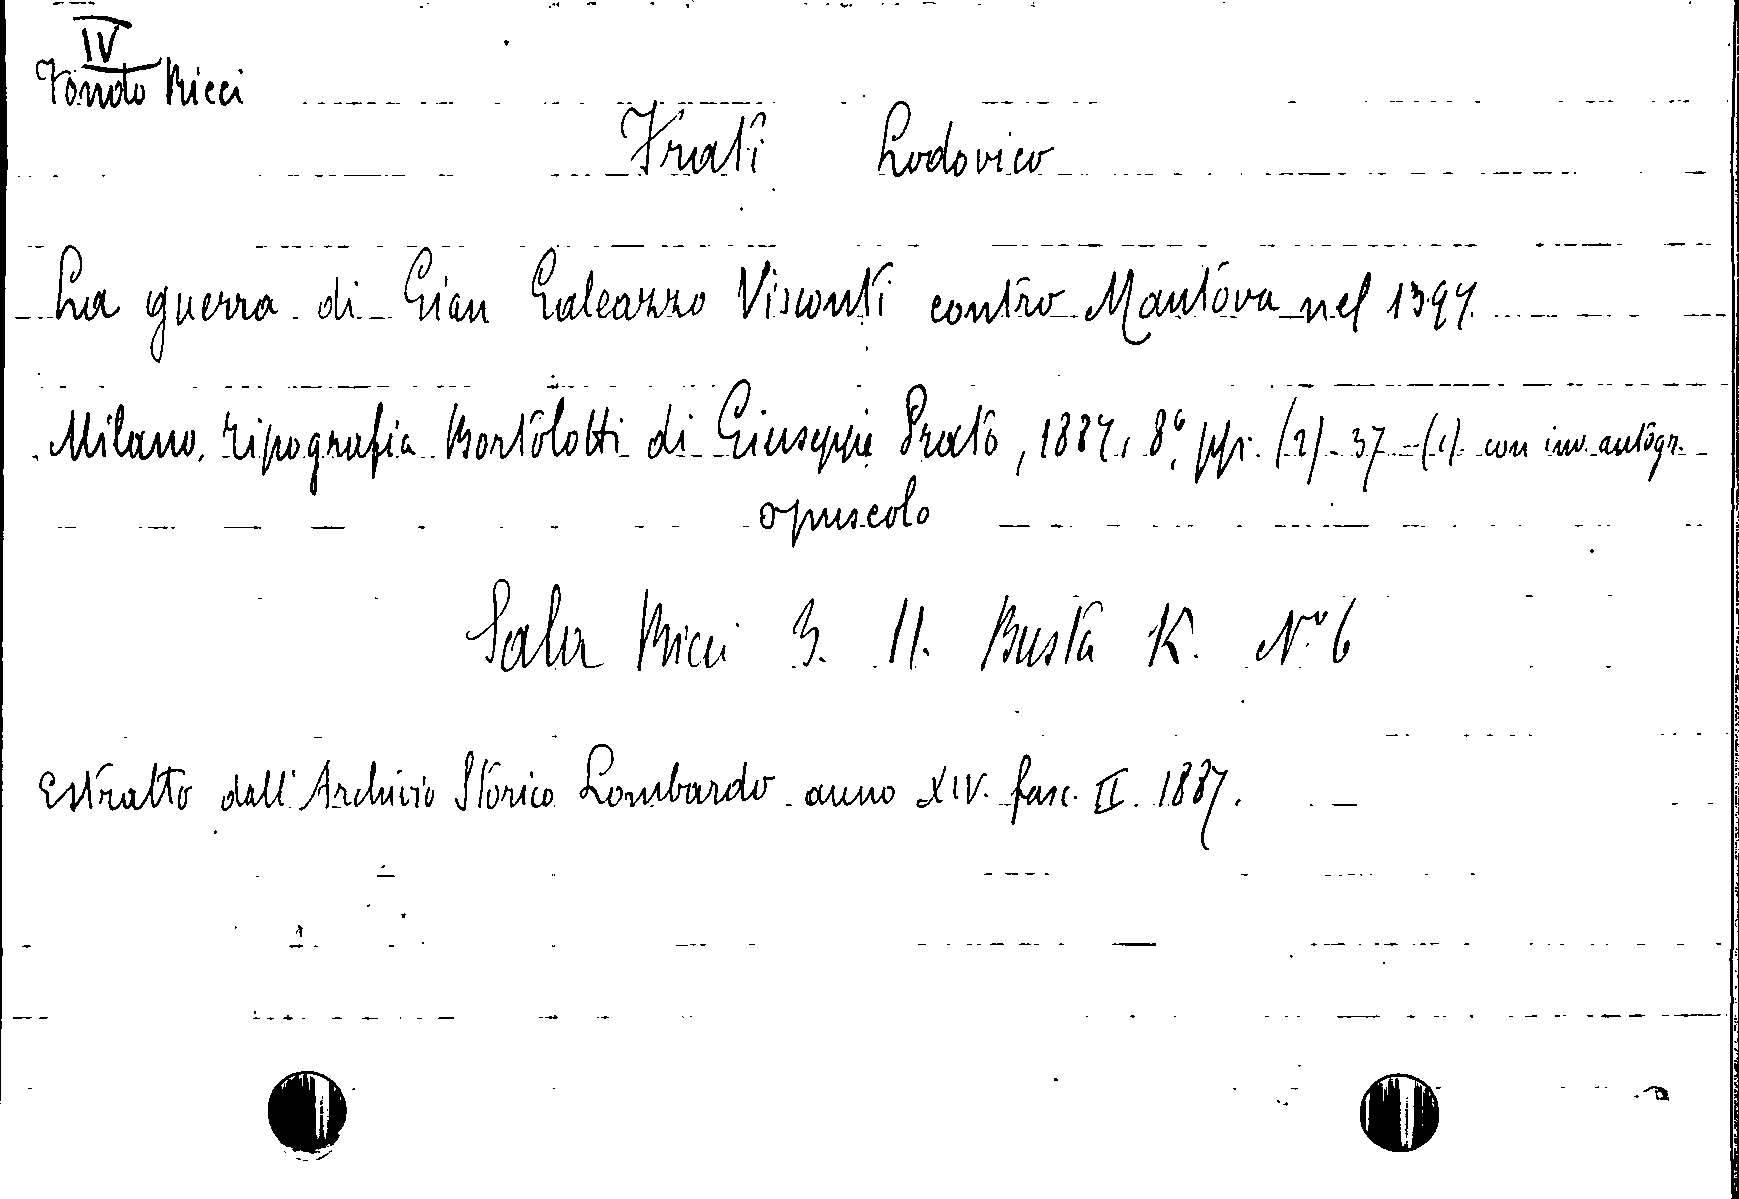 IV
Fondo Ricci
Frati Lodovico
La guerra di Gian Galeazzo Visconti contro Mantova nel 1397.
Milano, tipografia Bortolotti di Giuseppe Prato, 1887, 8°, pp. (2)-37-(1). con inv. autogr.
opuscolo
Sala Ricci 3. 11. Busta K. N° 6
Estratto dall'Archivio Storico Lombardo anno XIV. fasc. II. 1887.